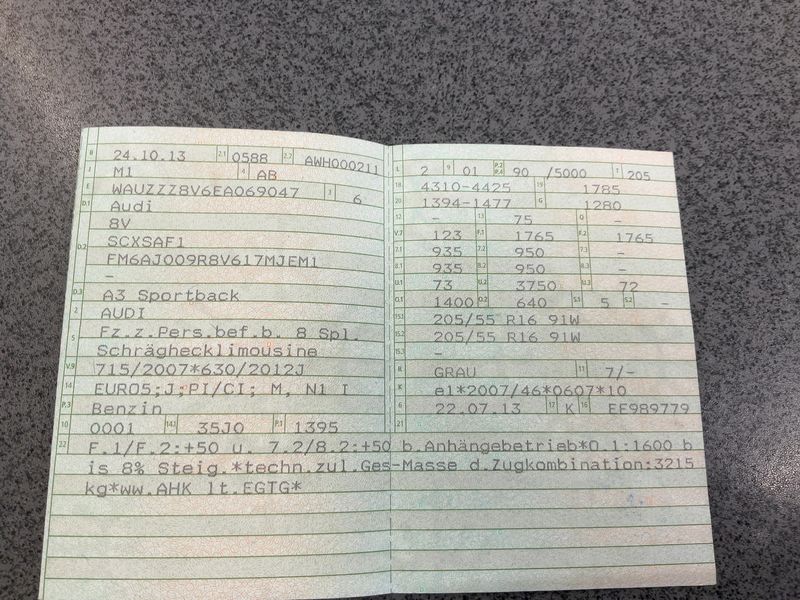 B 24.10.13 2.1 0588 2.2 AWH000211
J M1 4 AB
E WAUZZZ8V6EA069047 3 6
D.1 Audi
8V
D.2 SCXSAF1
FM6AJ009R8V617MJEM1
-
D.3 A3 Sportback
2 AUDI
5 Fz.z.Pers.bef.b. 8 Spl.
Schräghecklimousine
V.9 715/2007*630/2012J
14 EURO5;J;PI/CI; M, N1 I
P.3 Benzin
10 0001 14.1 35J0 P.1 1395
L 2 9 01 P.2 P.4 90 /5000 T 205
18 4310-4425 19 1785
20 1394-1477 G 1280
12 - 13 75 Q -
V.7 123 F.1 1765 F.2 1765
7.1 935 7.2 950 7.3 -
8.1 935 8.2 950 8.3 -
U.1 73 U.2 3750 U.3 72
O.1 1400 O.2 640 S.1 5 S.2 -
15.1 205/55 R16 91W
15.2 205/55 R16 91W
15.3 -
R GRAU 11 7/-
K e1*2007/46*0607*10
6 22.07.13 17 K 16 EF989779
21
22 F.1/F.2:+50 u. 7.2/8.2:+50 b.Anhängebetrieb*O.1:1600 b
is 8% Steig.*techn.zul.Ges-Masse d.Zugkombination:3215
kg*ww.AHK lt.EGTG*